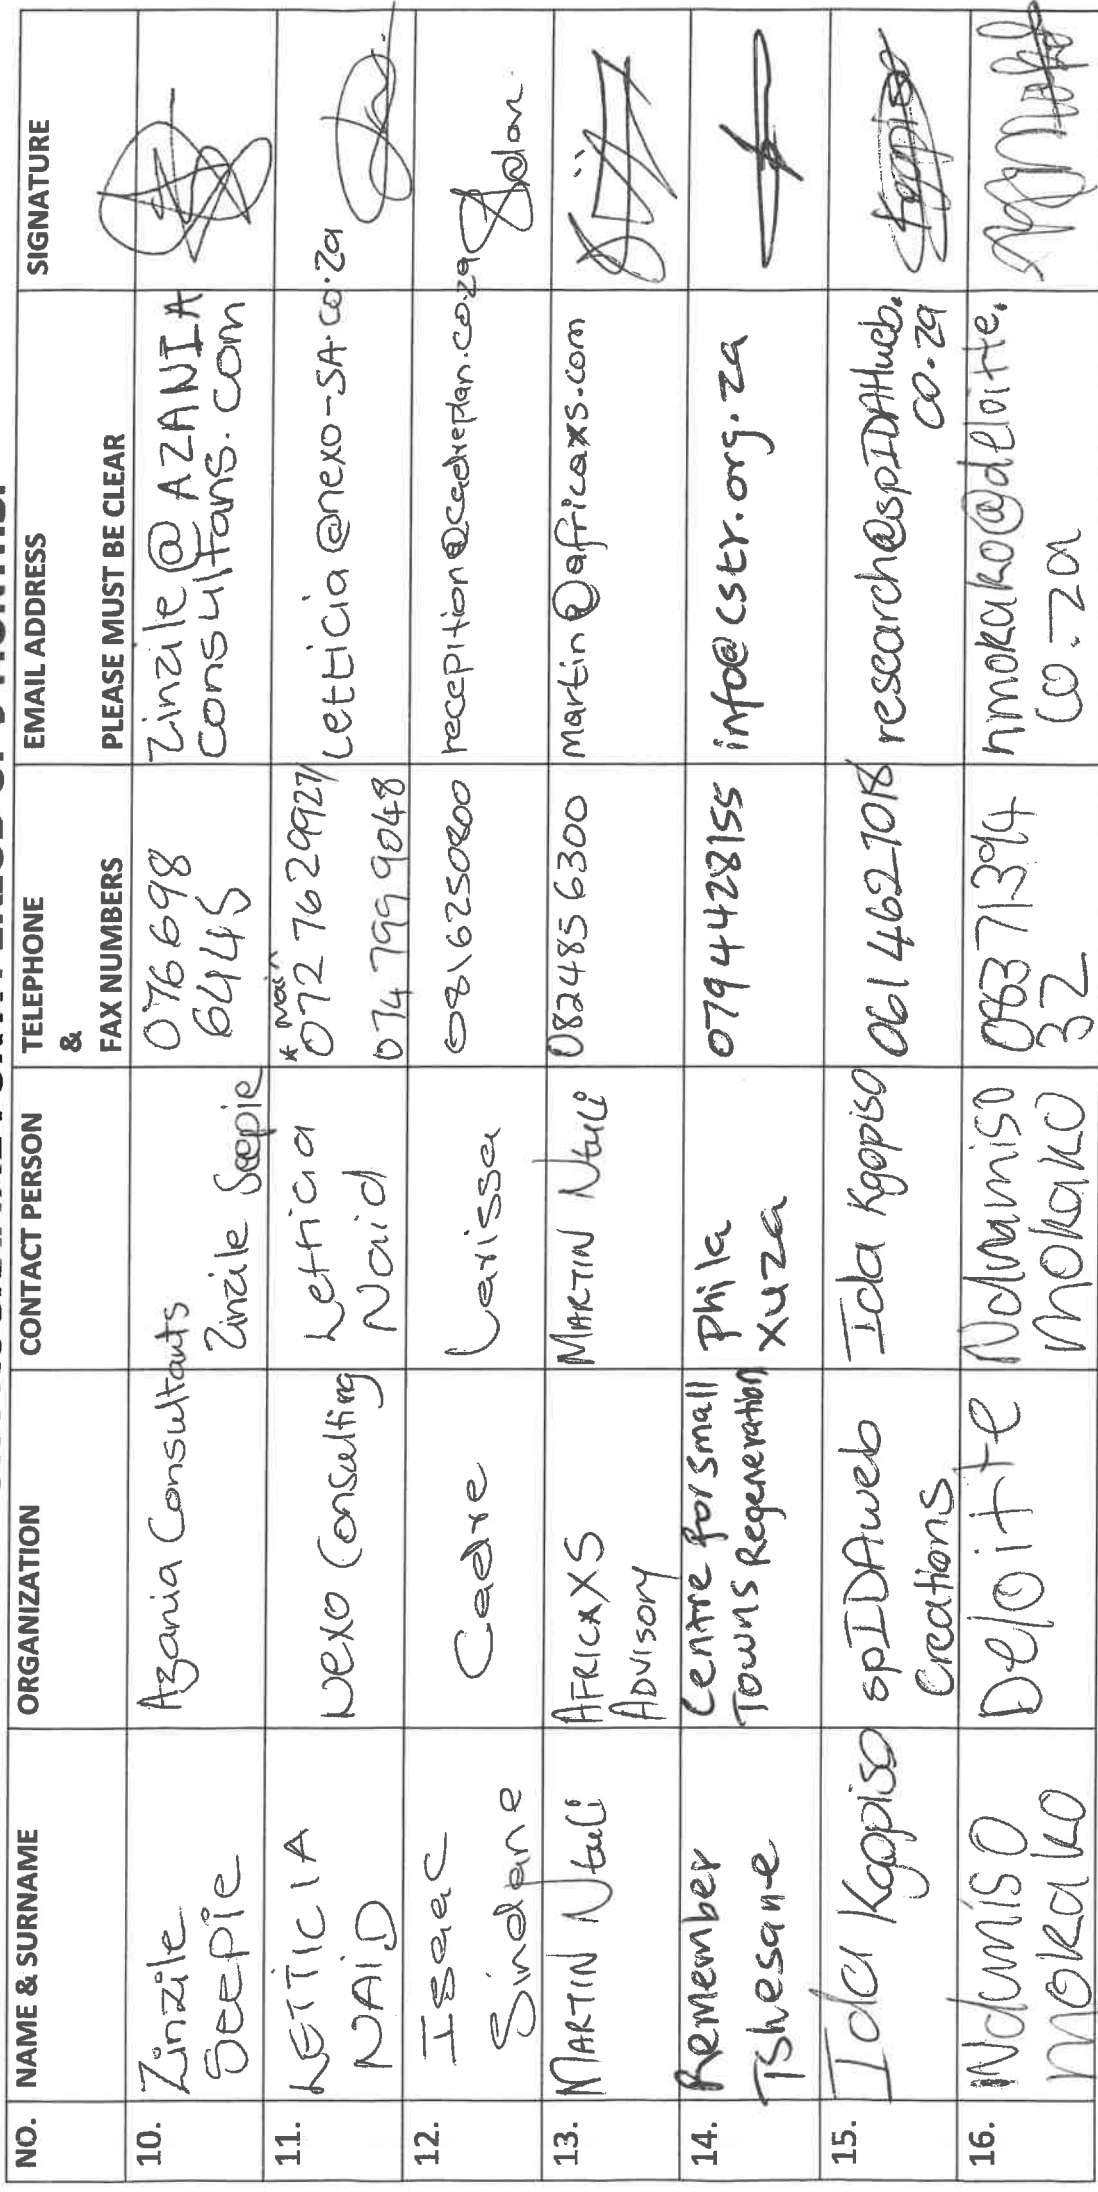 NO.
NAME & SURNAME
ORGANIZATION
CONTACT PERSON
TELEPHONE
&
FAX NUMBERS
EMAIL ADDRESS
PLEASE MUST BE CLEAR
SIGNATURE
10.
Zinzile
Seepie
Azania Consultants
Zinzile Seepie
076 698
6445
Zinzile@AZANIA
consultans.com
11.
LETTICIA
NAID
Nexo Consulting
Letticia
Naid
* Main
072 7629927/
074 799 9048
Letticia@nexo-SA.co.za
12.
Isaac
Sindane
Cadre
Larissa
0816250800
reception@cadreplan.co.za
13.
MARTIN Ntuli
AFRICAXS
ADVISORY
MARTIN Ntuli
0824856300
martin@africaxs.com
14.
Remember
Tshesane
Centre for small
Towns Regeneration
Phila
Xuza
0794428155
info@cstr.org.za
15.
Ida Kgopiso
spIDAweb
Creations
Ida Kgopiso
061 462 7018
research@spIDAHueb.
co.za
16.
Ndumiso
Mokako
Deloitte
Ndumiso
Mokako
32
hmokako@deloitte.
co.za